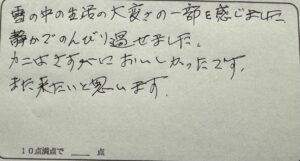 雪の中の生活の大変さの一部を感じました
静かでのんびり過せました。
カニはさすがにおいしかったです。
また来たいと思います。
10点満点で ____ 点